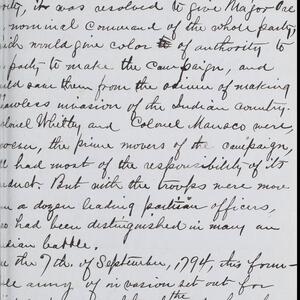 ority, it was resolved to give Major Ore
nominal command of the whole party,
ich would give color to of authority to
party to make the campaign, and
ld save them from the odium of making
lawless invasion of the Indian country.
olonel Whitley and Colonel Mansco were,
owever, the prime movers of the campaign,
d had most of the responsibility of its
duct. But with the troops were more
n a dozen leading partisan officers,
o had been distinguished in many an
dian battle.
n the 7th of September, 1794, this form-
ble army of invasion set out for
the